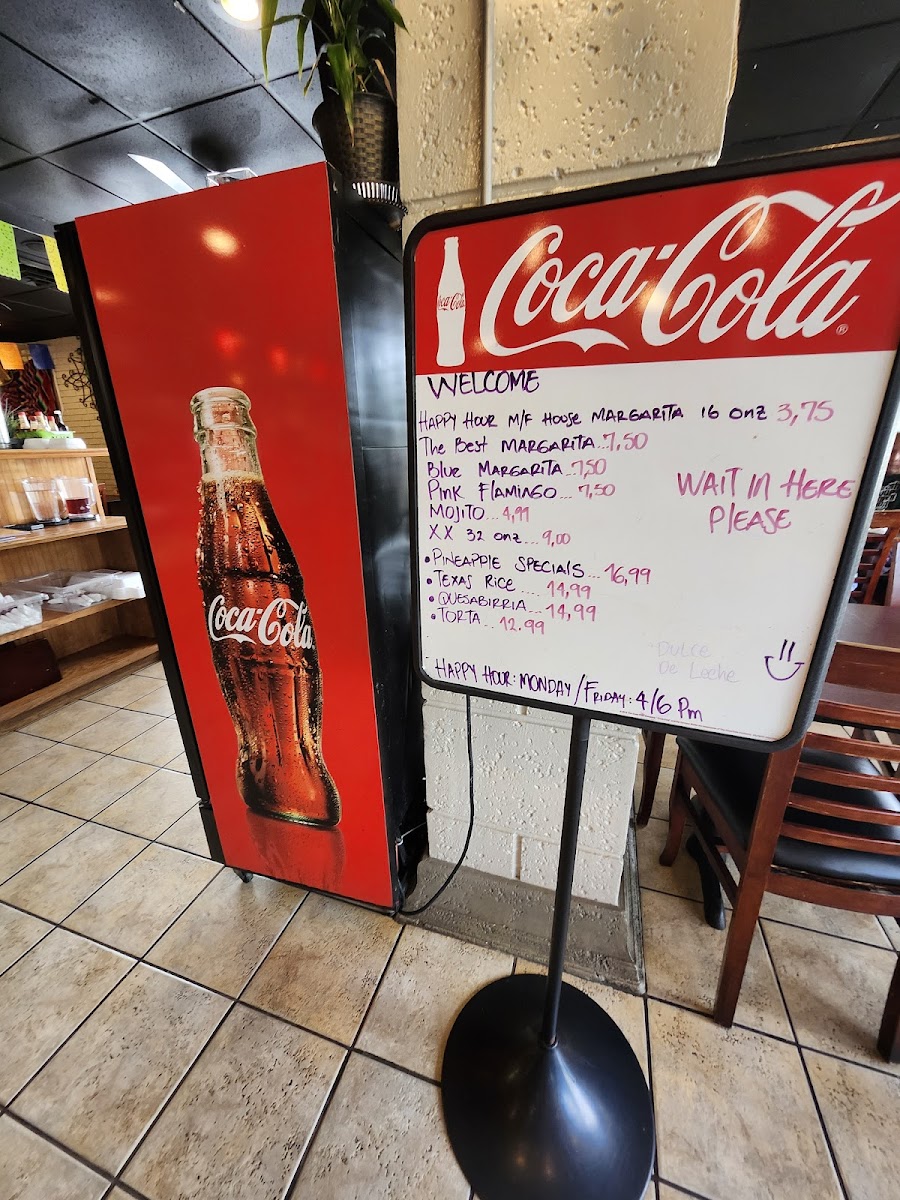 Coca-Cola
Coca-Cola
Coca-Cola
®
WELCOME
HAPPY HOUR M/F HOUSE MARGARITA 16 onz 3,75
The Best MARGARITA...7,50
Blue MARGARITA...7,50
Pink FlamingO...7,50
MOJITO....4,99
XX 32 onz....9,00
WAIT IN HERE
PLEASE
• PINEAPPLE SPECIALS...16,99
• TEXAS RICE .... 14,99
• QUESABIRRIA... 14,99
• TORTA... 12.99
DULCE
De Leche
HAPPY HOUR: MONDAY/FRIDAY: 4/6 Pm